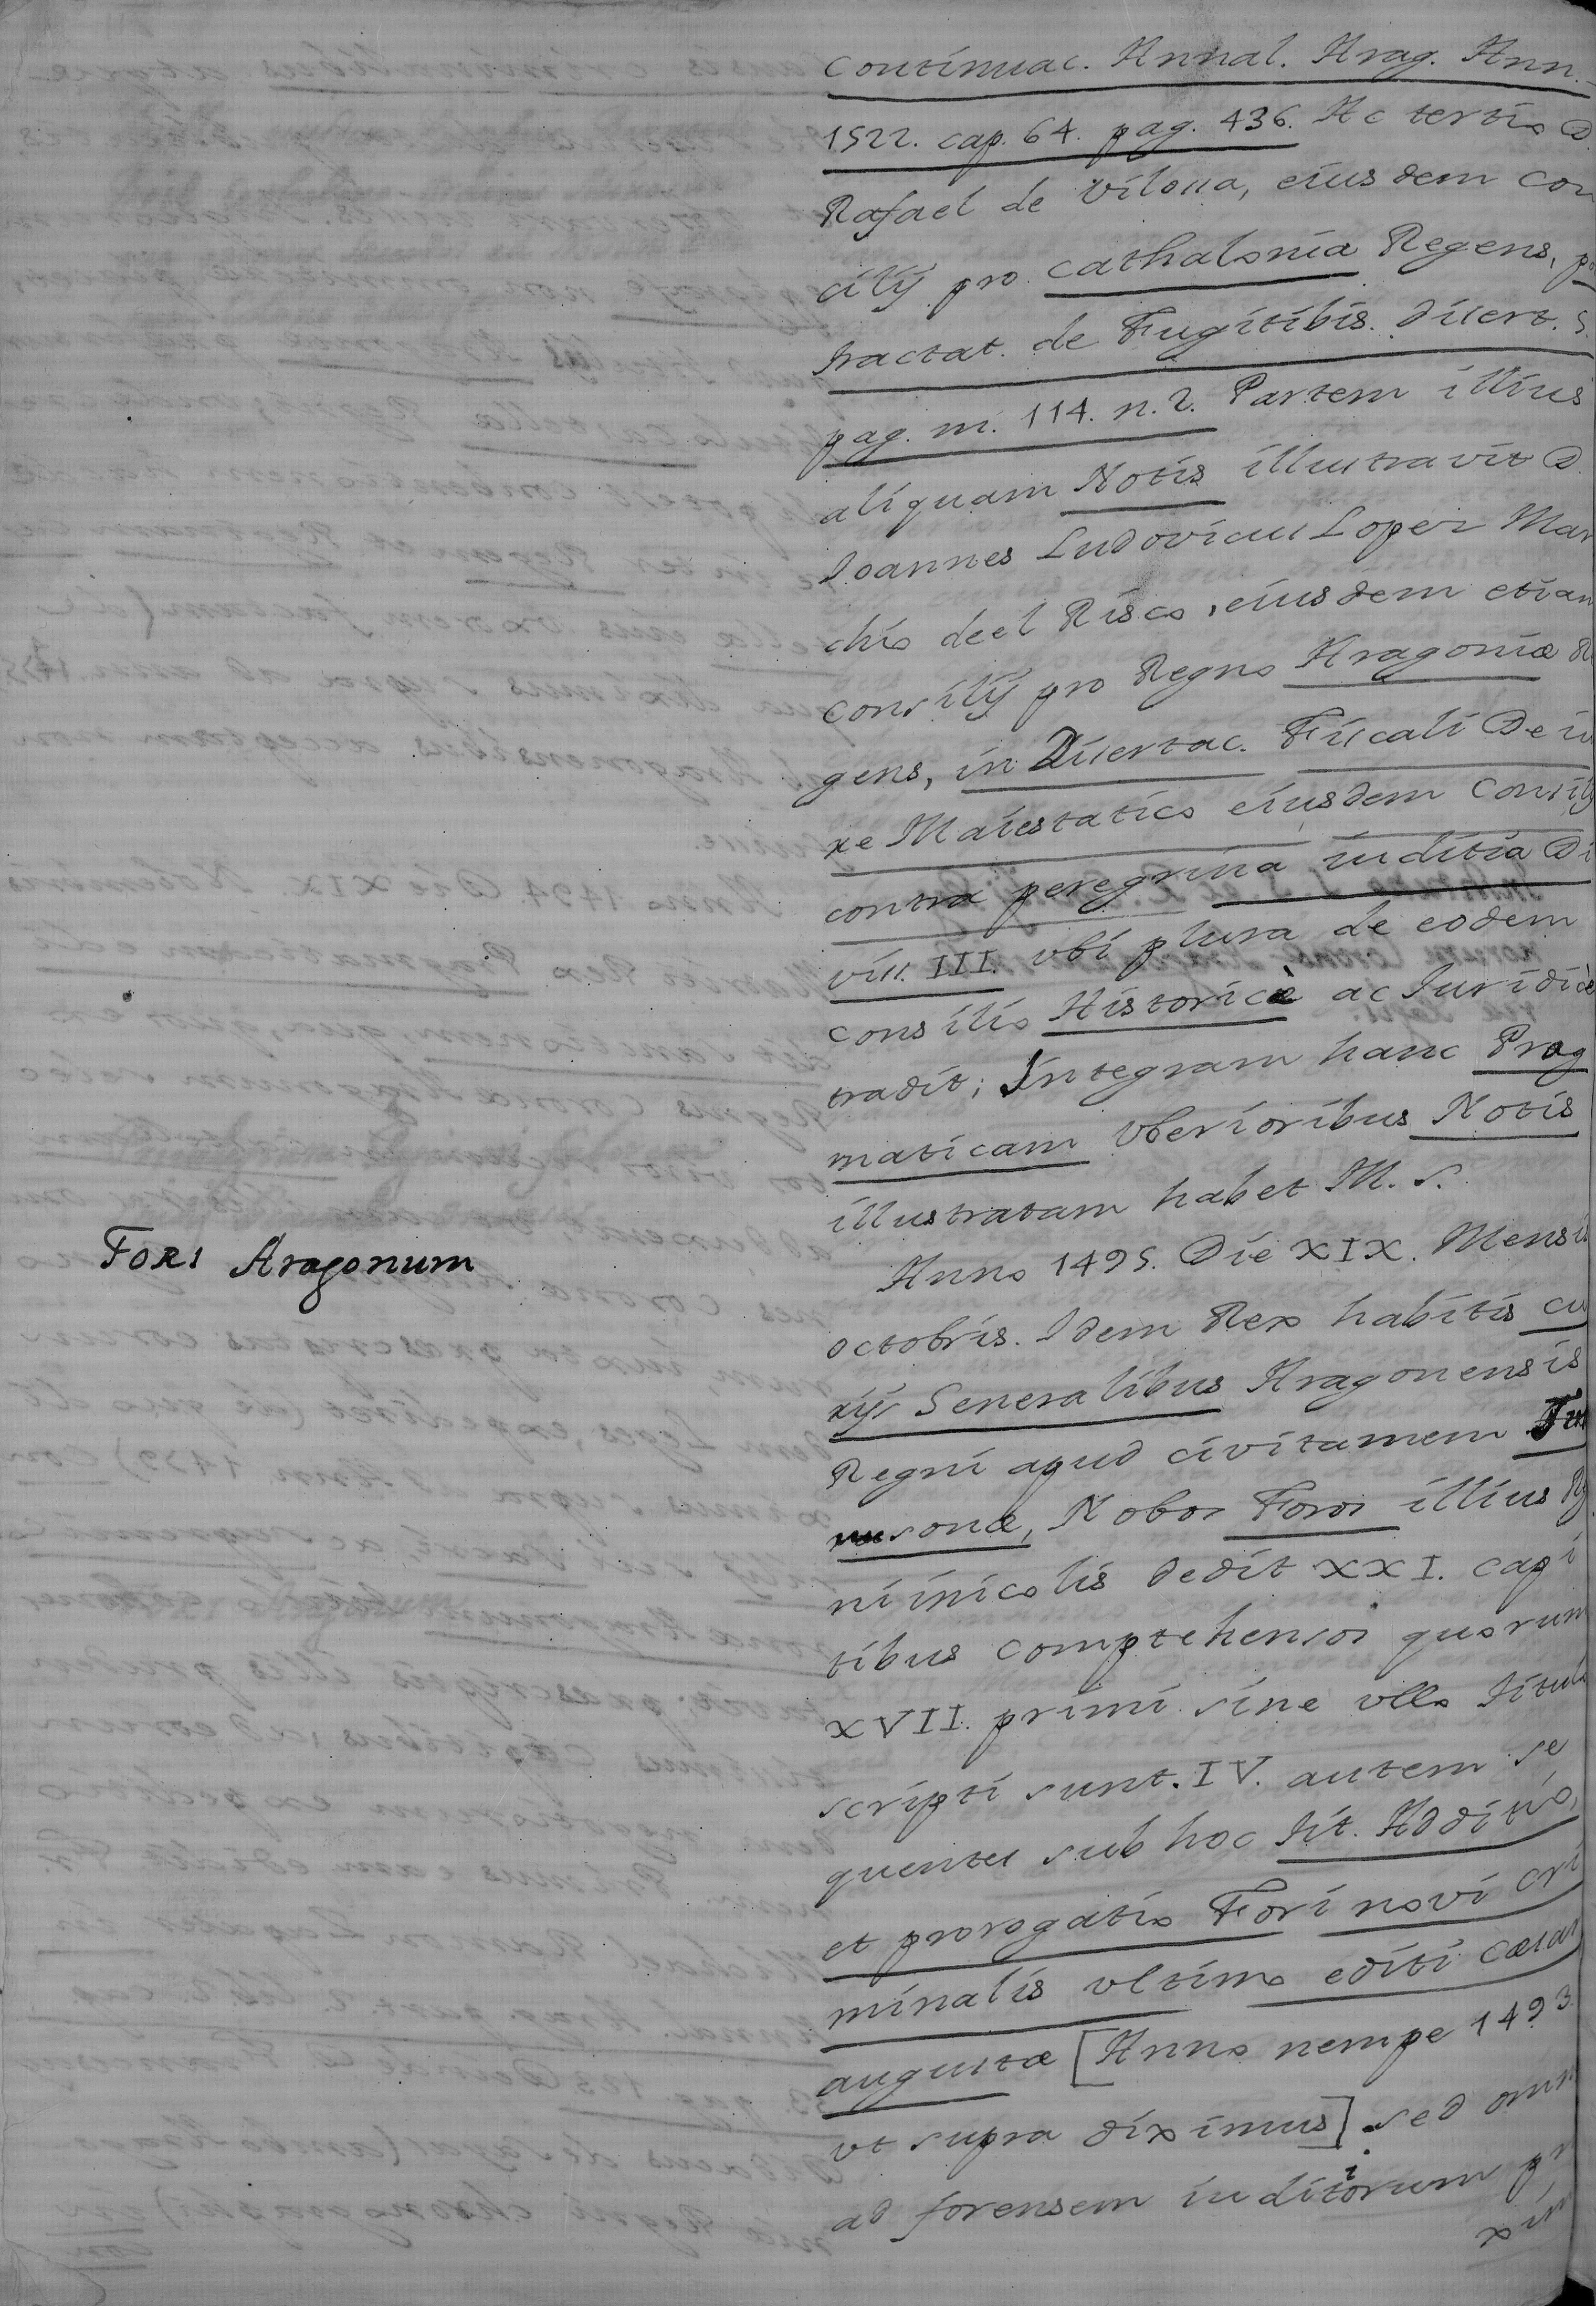 Continuac. Annal. Arag. Ann.
1522. cap. 64. pag. 436. Ac tertio D.
Rafael de Vilosa, eiusdem con
cilij pro Cathalonia Regens,
tractat. de Fugitibis. Dissert. 5.
pag. m. 114. n. 2. Partem illius
aliquam Notis illustravit D.
Ioannes Ludovicus Loper Mar
chio de el Risco, eiusdem etiam
consilij pro Regno Aragoniæ Re
gens, in Dissertac. Fiscali De iu
re Maiestatico eiusdem Consilij
contra peregrina iuditia Di
viss. III. vbi plura de eodem
consilio Historicè ac Iuridicè
tradit; Integram hanc Prag
maticam vberioribus Notis
illustratam habet M. S.
Fori Aragonum
Anno 1495. Die XIX. Mensis
octobris. Idem Rex habitis cu
rijs Generalibus Aragonensis
Regni apud civitamem
sonæ, Nobos Foros illius Reg
ni inicolis dedit XXI. capi
tibus comprehensos quorum
XVII. primi sine vllo titulo
scripti sunt. IV. autem se
quentes sub hoc tit. Additio,
et prorogatio Fori novi cri
minalis vltimo editi cæsar
augustæ [Anno nempe 1493.
vt supra diximus]. sed omn
ad forensem iuditiorum pr
xim